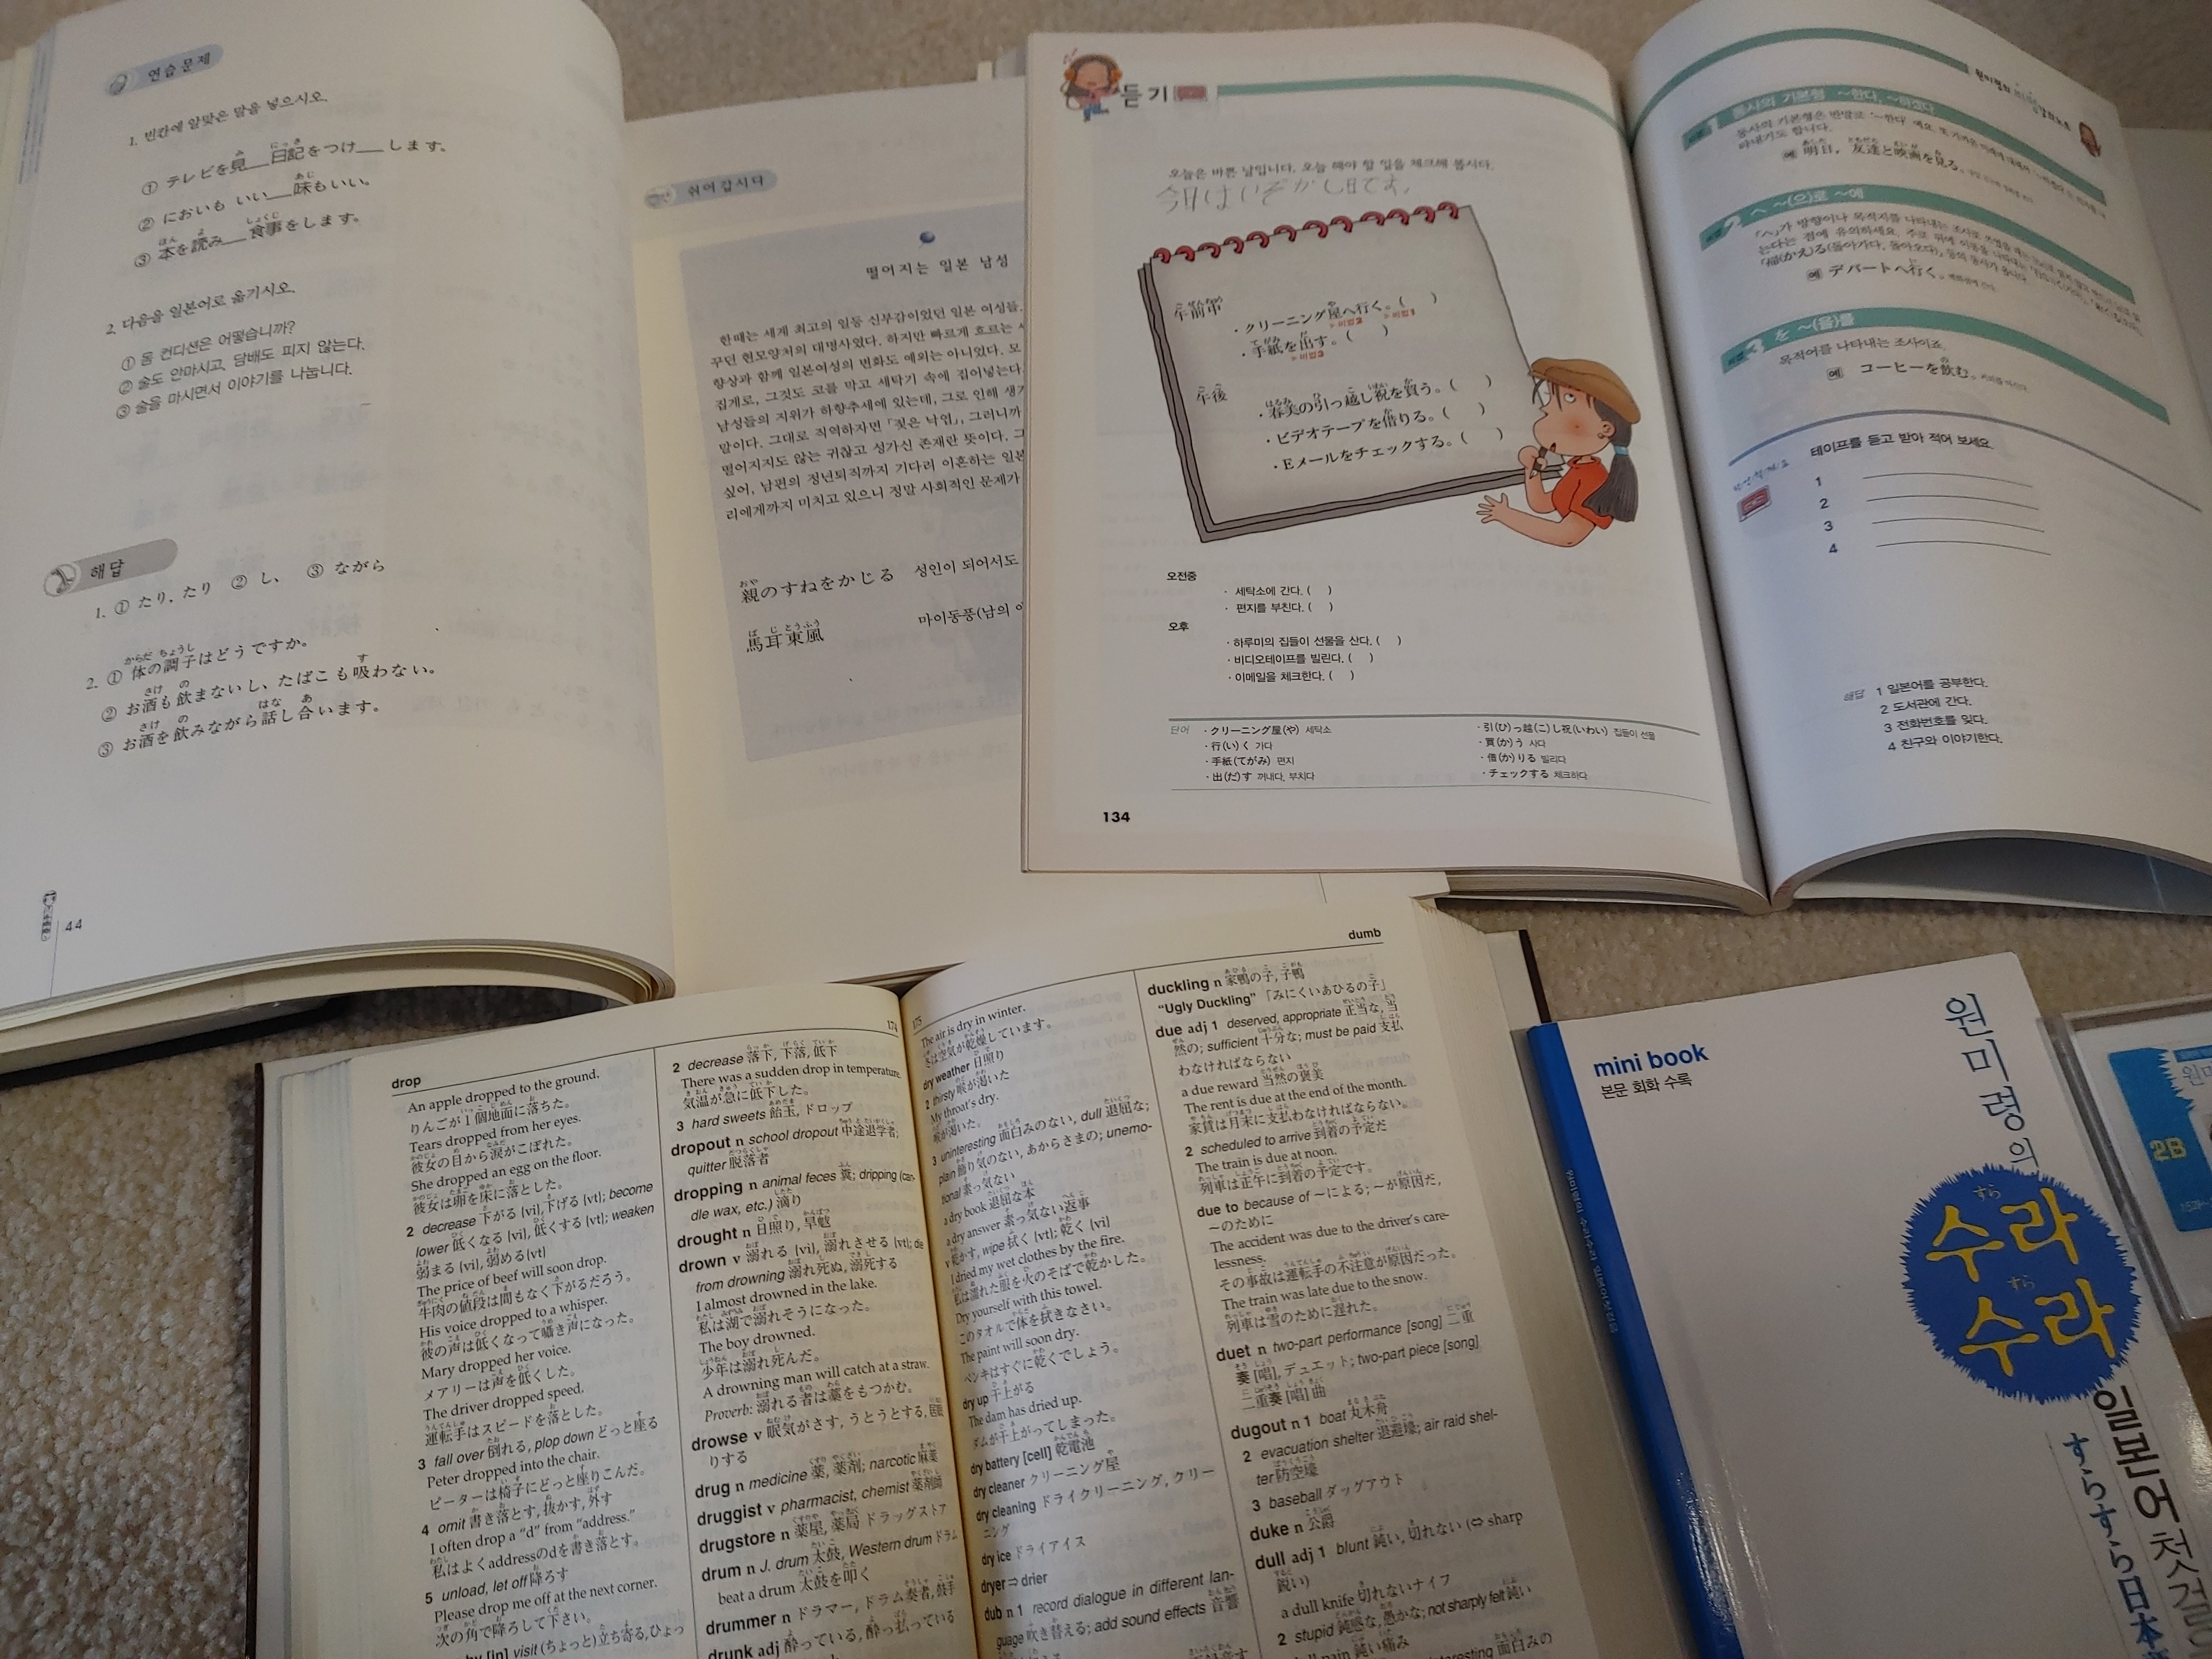 연습문제
1. 빈칸에 알맞은 말을 넣으시오.
① テレビを見__日記をつけ__します。
② においも いい__味もいい。
③ 本を読み__食事をします。
2. 다음을 일본어로 옮기시오.
① 몸 컨디션은 어떻습니까?
② 술도 안마시고, 담배도 피지 않는다.
③ 술을 마시면서 이야기를 나눕니다.
해답
1. ① たり, たり ② し、 ③ ながら
2. ① 体の調子はどうですか。
② お酒も飲まないし、たばこも吸わない。
③ お酒を飲みながら話し合います。
44
쉬어갑시다
떨어지는 일본 남성
한때는 세계 최고의 일등 신부감이었던 일본 여성들.
꾸던 현모양처의 대명사였다. 하지만 빠르게 흐르는
향상과 함께 일본여성의 변화도 예외는 아니었다. 모
집게로, 그것도 코를 막고 세탁기 속에 집어넣는다
남성들의 지위가 하향추세에 있는데, 그로 인해 생
말이다. 그대로 직역하자면 「젖은 낙엽」, 그러니까
떨어지지도 않는 귀찮고 성가신 존재란 뜻이다. 그
싶어, 남편의 정년퇴직까지 기다려 이혼하는 일본
리에게까지 미치고 있으니 정말 사회적인 문제가
親のすねをかじる 성인이 되어서도
馬耳東風 마이동풍(남의
듣기
오늘은 바쁜 날입니다. 오늘 해야 할 일을 체크해 봅시다.
今日はいそがし日です。
午前中
・クリーニング屋へ行く。( )
・手紙を出す。( )
午後
・春美の引っ越し祝を買う。( )
・ビデオテープを借りる。( )
・Eメールをチェックする。( )
오전중
· 세탁소에 간다. ( )
· 편지를 부친다. ( )
오후
· 하루미의 집들이 선물을 산다. ( )
· 비디오테이프를 빌린다. ( )
· 이메일을 체크한다. ( )
단어
・クリーニング屋(や) 세탁소
・行(い)く 가다
・手紙(てがみ) 편지
・出(だ)す 꺼내다, 부치다
・引(ひ)っ越(こ)し祝(いわい) 집들이 선물
・買(か)う 사다
・借(か)りる 빌리다
・チェックする 체크하다
134
1 동사의 기본형 ~한다, ~하겠다
예 明日, 友達と映画を見る。
2 へ ~(으)로 ~에
예 デパートへ行く。
3 を ~(을)를
목적어를 나타내는 조사이죠.
예 コーヒーを飲む。
테이프를 듣고 받아 적어 보세요.
1
2
3
4
해답 1 일본어를 공부한다.
2 도서관에 간다.
3 전화번호를 잊다.
4 친구와 이야기한다.
drop
174
An apple dropped to the ground.
りんごが1個地面に落ちた。
Tears dropped from her eyes.
彼女の目から涙がこぼれた。
She dropped an egg on the floor.
彼女は卵を床に落とした。
2 decrease 下がる [vi], 下げる [vt]; become
lower 低くなる [vi], 低くする [vt]; weaken
弱まる [vi], 弱める[vt]
The price of beef will soon drop.
牛肉の値段は間もなく下がるだろう。
His voice dropped to a whisper.
彼の声は低くなって囁き声になった。
Mary dropped her voice.
メアリーは声を低くした。
The driver dropped speed.
運転手はスピードを落とした。
3 fall over 倒れる, plop down どっと座る
Peter dropped into the chair.
ピーターは椅子にどっと座りこんだ。
4 omit 書き落とす, 抜かす, 外す
I often drop a “d” from “address.”
私はよくaddressのdを書き落とす。
5 unload, let off 降ろす
Please drop me off at the next corner.
次の角で降ろして下さい。
[in] visit (ちょっと)立ち寄る, ひょっ
2 decrease 落下, 下落, 低下
There was a sudden drop in temperature.
気温が急に低下した。
3 hard sweets 飴玉, ドロップ
dropout n school dropout 中途退学者;
quitter 脱落者
dropping n animal feces 糞; dripping (can-
dle wax, etc.) 滴り
drought n 日照り, 旱魃
drown v 溺れる [vi], 溺れさせる [vt]; die
from drowning 溺れ死ぬ, 溺死する
I almost drowned in the lake.
私は湖で溺れそうになった。
The boy drowned.
少年は溺れ死んだ。
A drowning man will catch at a straw.
Proverb: 溺れる者は藁をもつかむ。
drowse v 眠気がさす, うとうとする, 居眠
りする
drug n medicine 薬, 薬剤; narcotic 麻薬
druggist v pharmacist, chemist 薬剤師
drugstore n 薬屋, 薬局 ドラッグストア
drum n J. drum 太鼓, Western drum ドラム
beat a drum 太鼓を叩く
drummer n ドラマー, ドラム奏者, 鼓手
drunk adj 酔っている, 酔っ払っている
175
dumb
The air is dry in winter.
冬は空気が乾燥しています。
dry weather 日照り
2 thirsty 喉が渇いた
My throat's dry.
喉が渇いた。
3 uninteresting 面白みのない, dull 退屈な;
plain 飾り気のない, あからさまの; unemo-
tional 素っ気ない
a dry book 退屈な本
a dry answer 素っ気ない返事
v 乾かす, wipe 拭く [vt]; 乾く [vi]
I dried my wet clothes by the fire.
私は濡れた服を火のそばで乾かした。
Dry yourself with this towel.
このタオルで体を拭きなさい。
The paint will soon dry.
ペンキはすぐに乾くでしょう。
dry up 干上がる
The dam has dried up.
ダムが干上がってしまった。
dry battery [cell] 乾電池
dry cleaner クリーニング屋
dry cleaning ドライクリーニング, クリー
ニング
dry ice ドライアイス
dryer ⇒ drier
dub n 1 record dialogue in different lan-
guage 吹き替える; add sound effects 音響
duckling n 家鴨の子, 子鴨
“Ugly Duckling” 「みにくいあひるの子」
due adj 1 deserved, appropriate 正当な, 当
然の; sufficient 十分な; must be paid 支払
わなければならない
a due reward 当然の褒美
The rent is due at the end of the month.
家賃は月末に支払わなければならない。
2 scheduled to arrive 到着の予定だ
The train is due at noon.
列車は正午に到着の予定です。
due to because of ～による; ～が原因だ,
～のために
The accident was due to the driver's care-
lessness.
その事故は運転手の不注意が原因だった。
The train was late due to the snow.
列車は雪のために遅れた。
duet n two-part performance [song] 二重
奏 [唱], デュエット; two-part piece [song]
二重奏 [唱] 曲
dugout n 1 boat 丸木舟
2 evacuation shelter 退避壕; air raid shel-
ter 防空壕
3 baseball ダッグアウト
duke n 公爵
dull adj 1 blunt 鈍い, 切れない (⇔ sharp
鋭い)
a dull knife 切れないナイフ
2 stupid 鈍感な, 愚かな; not sharply felt 鈍い
dull pain 鈍い痛み
interesting 面白みの
mini book
본문 회화 수록
원미령의
すら
수라
すら
수라
일본어 첫걸음
すらすら日本
원미령의 수라수라 일본어첫걸음
2B